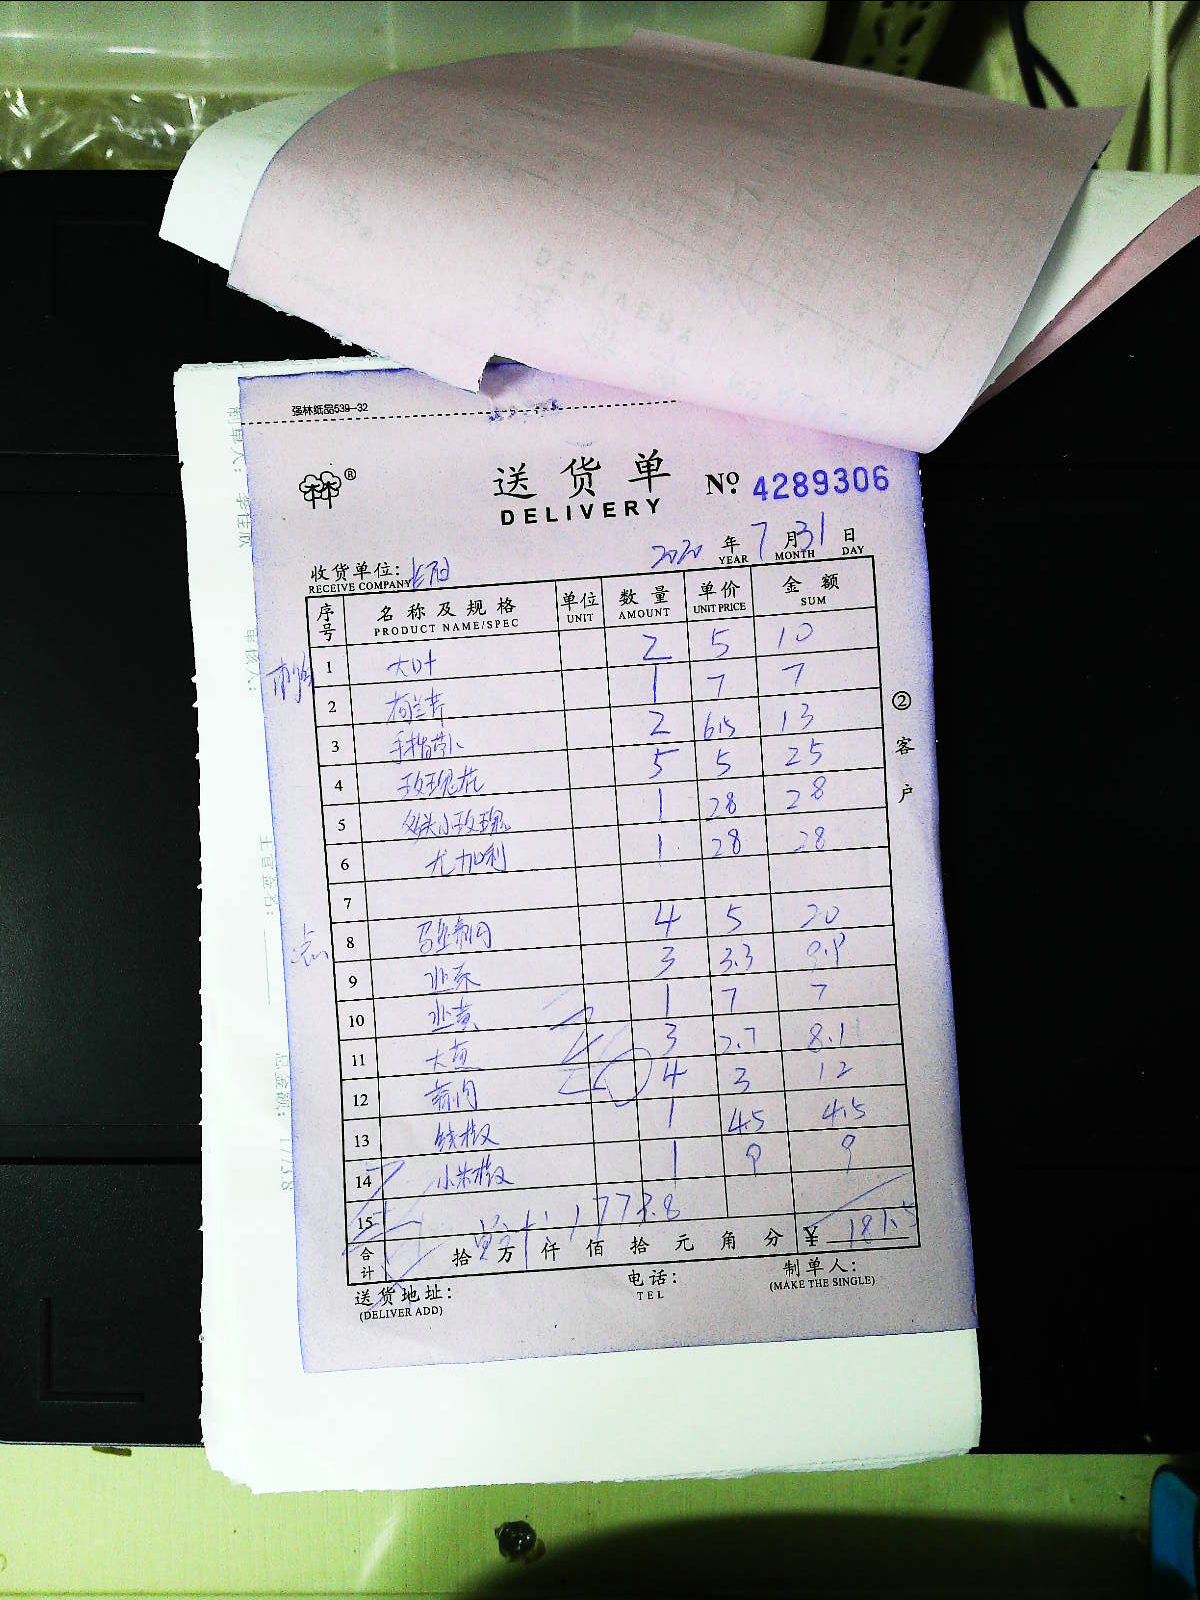 强林纸品539-32
送货单 № 4289306
DELIVERY
2020年7月31日
YEAR MONTH DAY
收货单位:
RECEIVE COMPANY
序号 名称及规格 单位 数量 单价 金额
PRODUCT NAME/SPEC UNIT AMOUNT UNIT PRICE SUM
1 大叶 2 5 10
2 荷兰芹 1 7 7
3 2 6.5 13
4 玫瑰花 5 5 25
5 多头小玫瑰 1 28 28
6 尤加利 1 28 28
7
8 4 5 20
9 3 3.3 9.9
10 韭黄 1 7 7
11 大葱 3 2.7 8.1
12 4 3 12
13 线椒 1 4.5 4.5
14 小米椒 1 9 9
15 1773.8
合计 拾 万 仟 佰 拾 元 角 分 ¥ 181.5
送货地址: 电话: 制单人:
(DELIVER ADD) TEL (MAKE THE SINGLE)
②客户